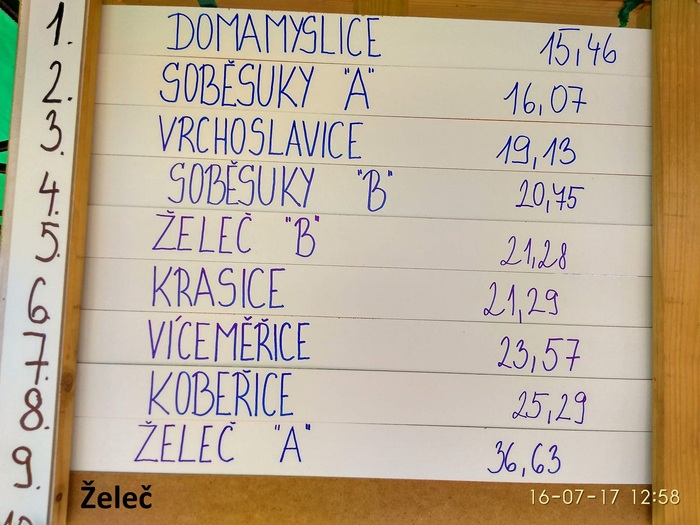 1. DOMAMYSLICE 15,46
2. SOBĚSUKY "A" 16,07
3. VRCHOSLAVICE 19,13
4. SOBĚSUKY "B" 20,75
5. ŽELEČ "B" 21,28
6. KRASICE 21,29
7. VÍCEMĚŘICE 23,57
8. KOBEŘICE 25,29
9. ŽELEČ "A" 36,63
Želeč 16-07-17 12:58